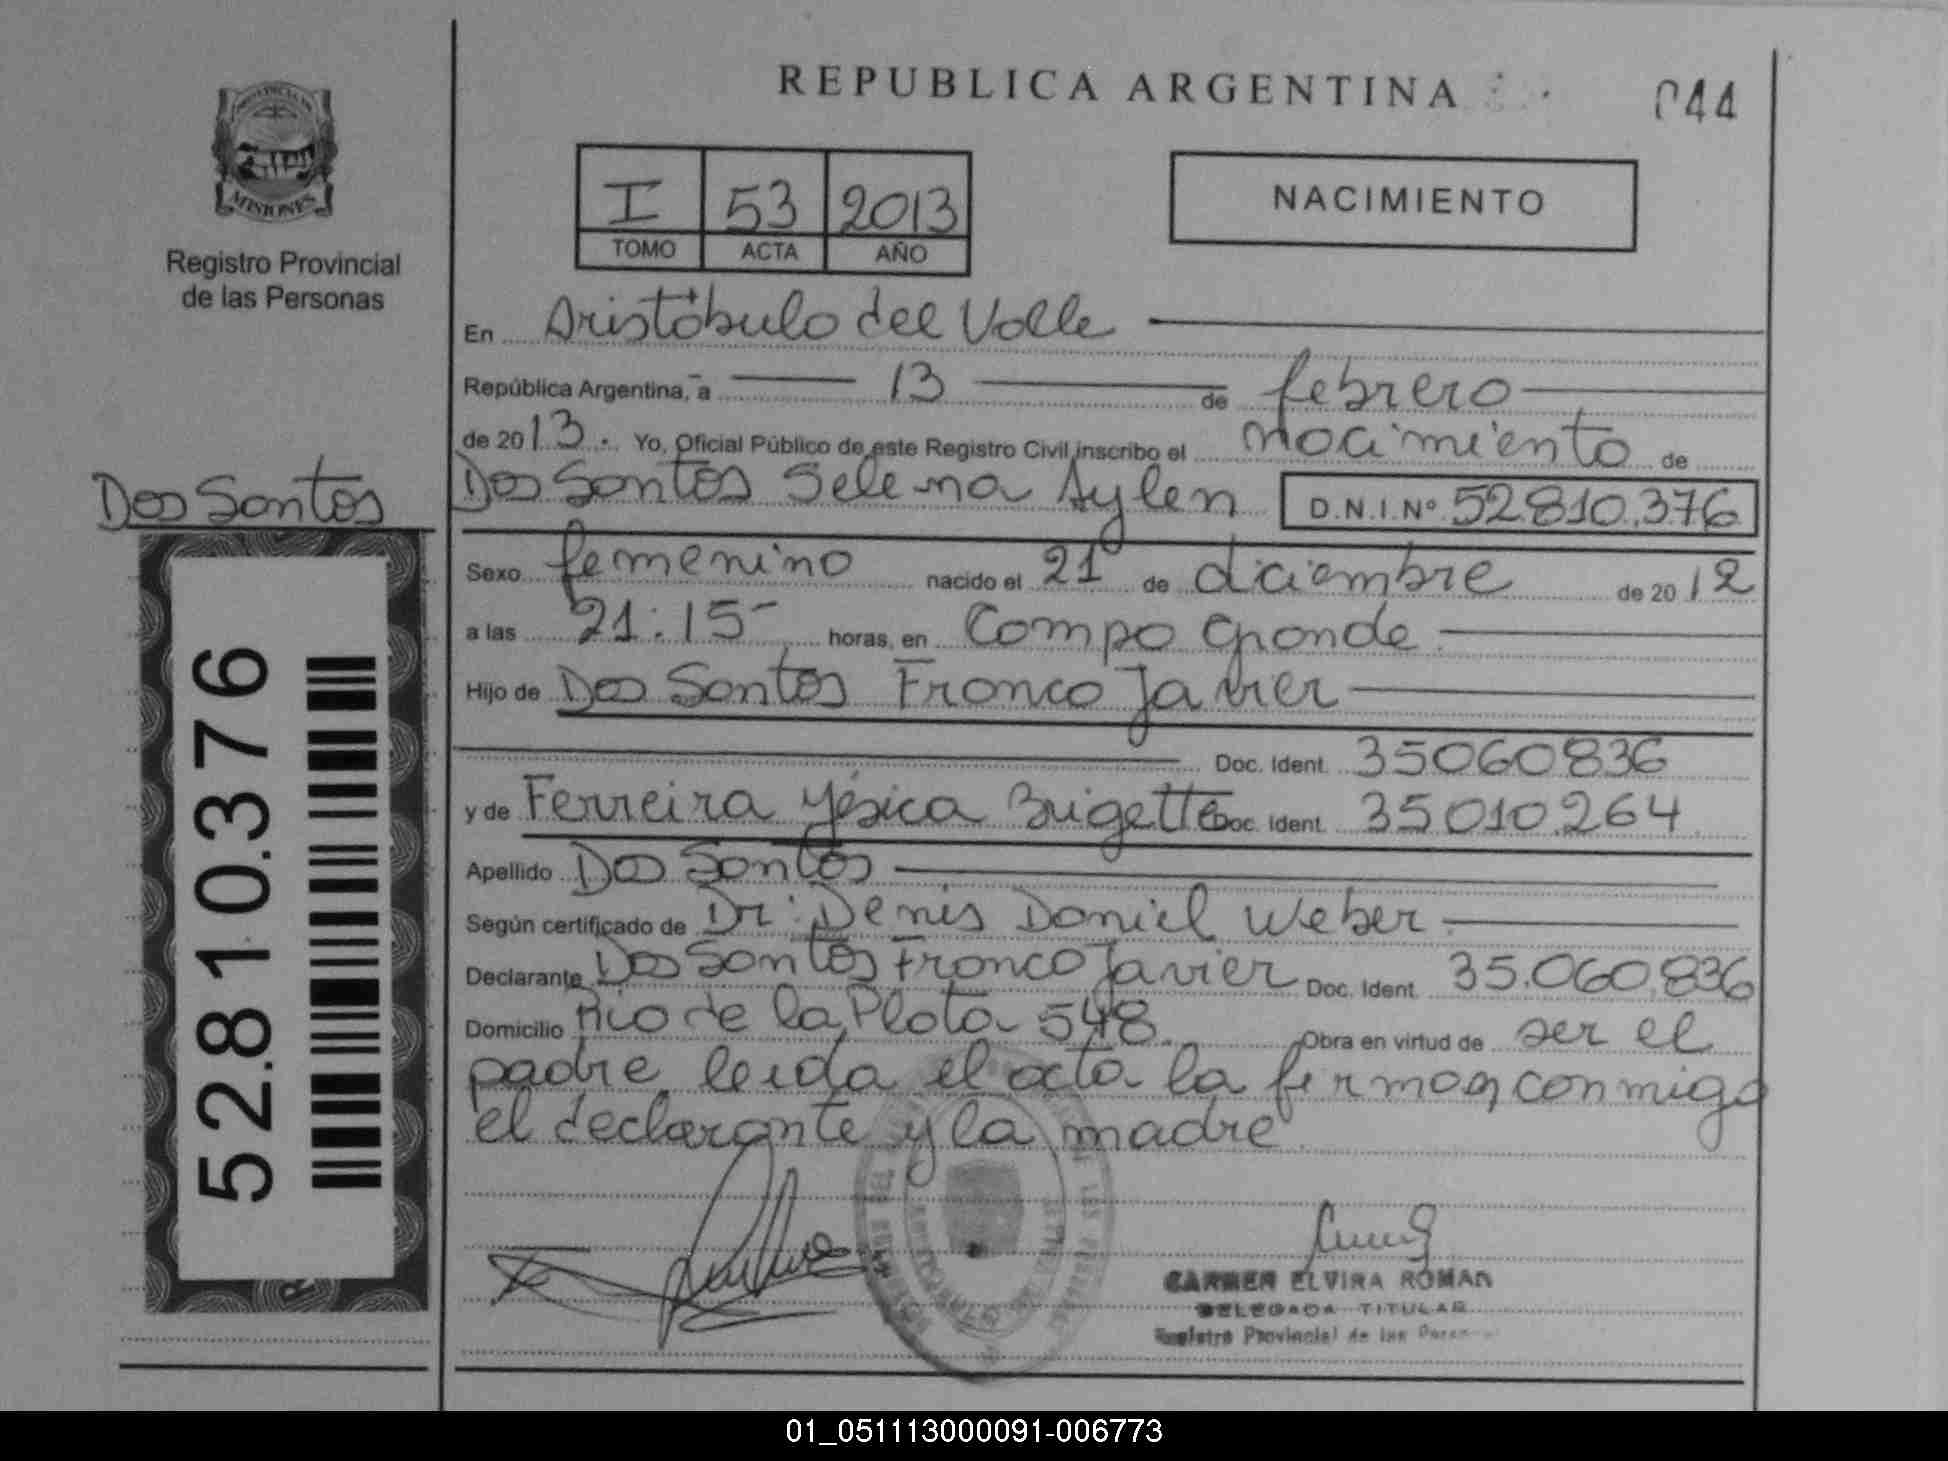 REPUBLICA ARGENTINA
044
PROVINCIA DE
MISIONES
Registro Provincial
de las Personas
I 53 2013
TOMO ACTA AÑO
NACIMIENTO
En Aristóbulo del Valle
República Argentina, a 13 de febrero
de 2013. Yo, Oficial Público de este Registro Civil inscribo el nacimiento de
Dos Santos
Dos Santos Selena Aylen D.N.I.Nº 52.810.376
Sexo femenino nacido el 21 de diciembre de 2012
a las 21:15 horas, en Campo Grande.
Hijo de Dos Santos Franco Javier
Doc. Ident. 35060836
y de Ferreira Yésica Brigette Doc. Ident. 35010264
Apellido Dos Santos
Según certificado de Dr. Denis Daniel Weber.
Declarante Dos Santos Franco Javier Doc. Ident. 35.060.836
Domicilio Rio de la Plata 548 Obra en virtud de ser el
padre, leida el acta la firman conmigo
el declarante y la madre.
52.810.376
CARMEN ELVIRA ROMAN
DELEGADA TITULAR
Registro Provincial de las
01_051113000091-006773